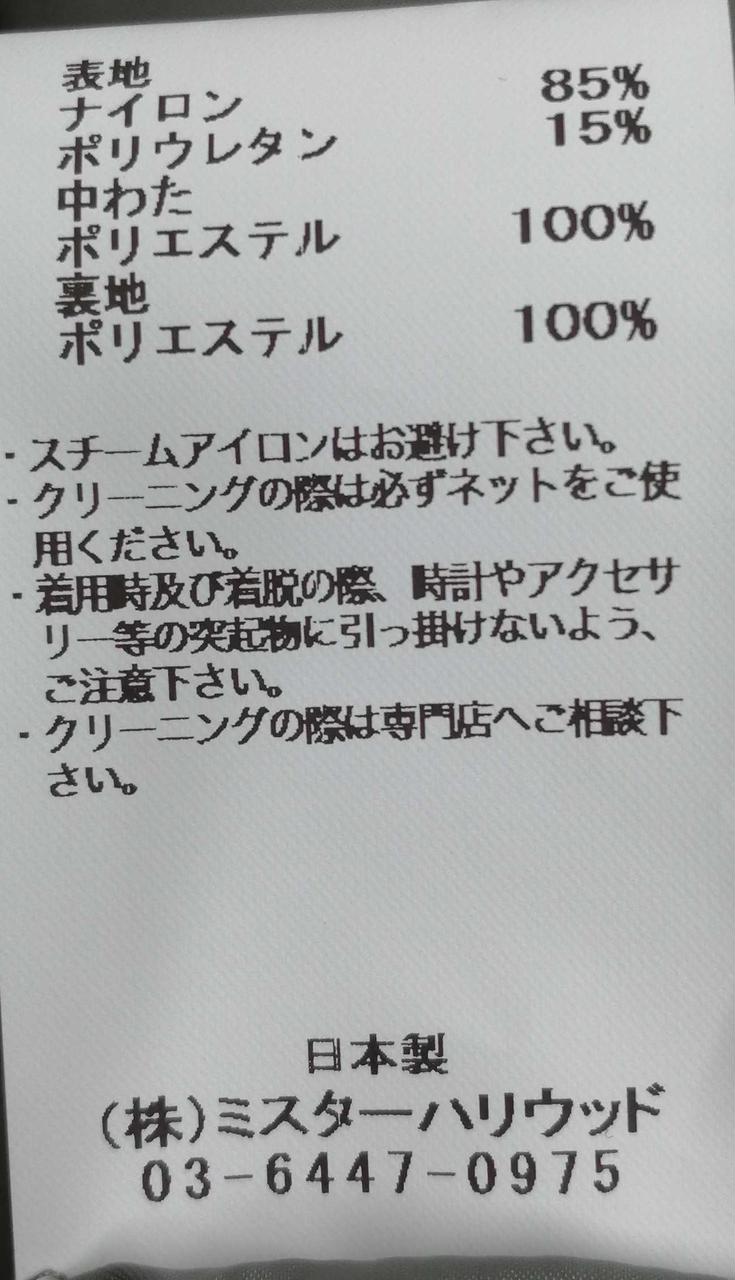 表地
ナイロン 85%
ポリウレタン 15%
中わた
ポリエステル 100%
裏地
ポリエステル 100%
・スチームアイロンはお避け下さい。
・クリーニングの際は必ずネットをご使
用ください。
・着用時及び着脱の際、時計やアクセサ
リー等の突起物に引っ掛けないよう、
ご注意下さい。
・クリーニングの際は専門店へご相談下
さい。
日本製
(株)ミスターハリウッド
03-6447-0975